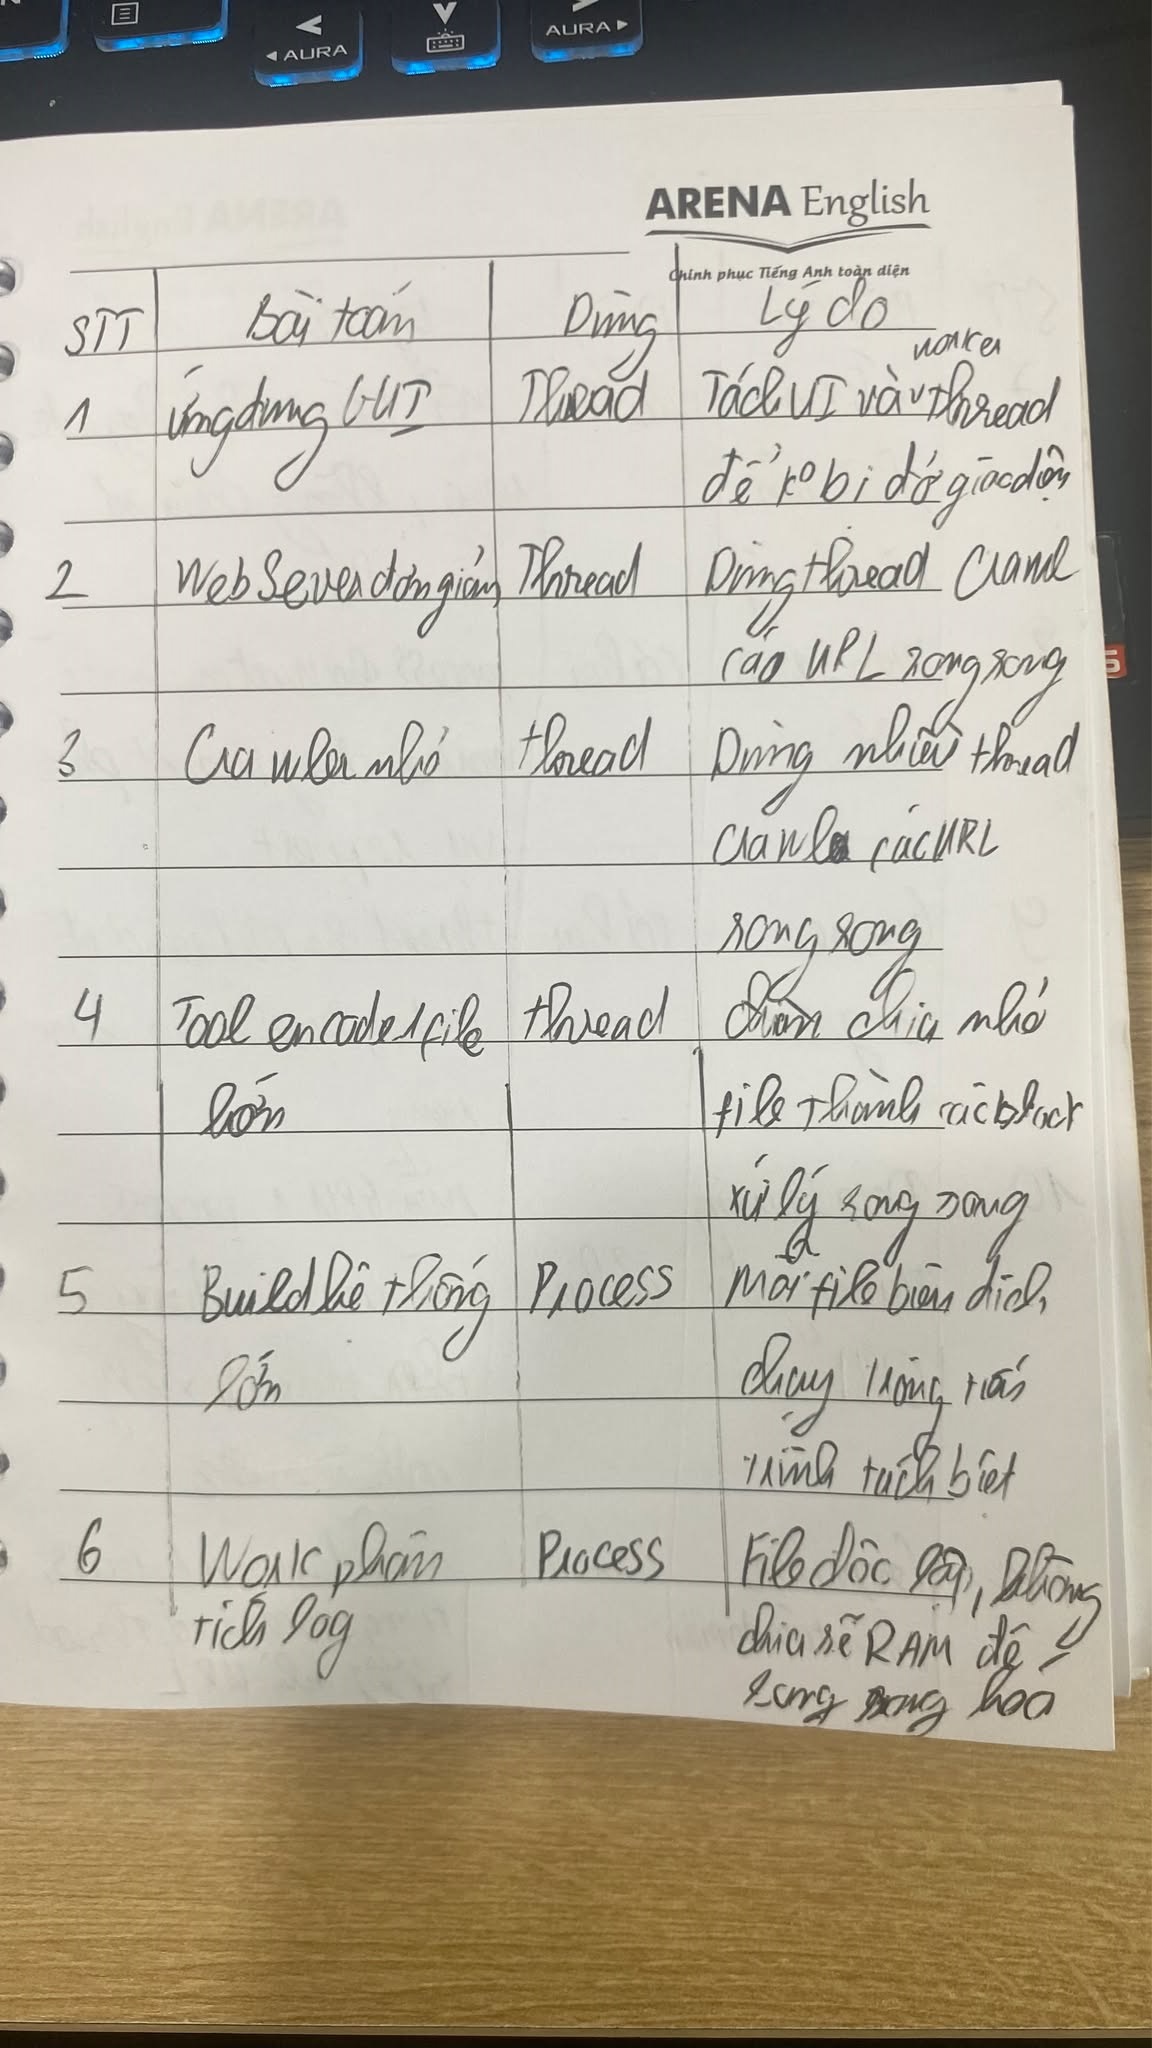 AURA
AURA
ARENA English
Chinh phục Tiếng Anh toàn diện
STT Bài toán Dùng Lý do
worker
1 Ứng dụng GUI Thread Tách UI và thread
để ko bị đơ giao diện
2 Web Sever đơn giản Thread Dùng thread Crawl
các URL song song
3 Crawler nhỏ thread Dùng nhiều thread
crawl các URL
song song
4 Tool encoder 1 file thread chia nhỏ
lớn file thành các block
xử lý song song
5 Build hệ thống Process Mỗi file biên dịch
lớn chạy trong tiến
trình tách biệt
6 Work phân Process File độc lập, không
tích log chia sẽ RAM để
song song hoá